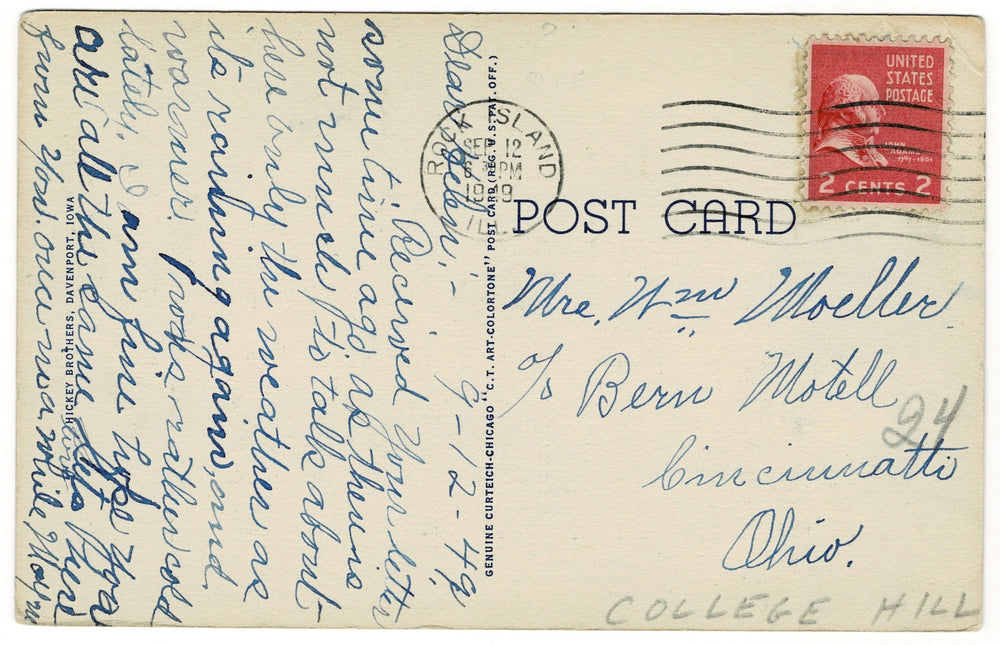 9-12-49
Dear Helen:-
Received your letter
some time ago as there is
not much to talk about
here only the weather as
its raining again, and
warmer. was rather cold
lately. I am fine hope you
are all the same. Lets here
from you. once in a while
GENUINE CURTEICH-CHICAGO "C.T. ART-COLORTONE" POST CARD (REG. U.S. PAT. OFF.)
HICKEY BROTHERS, DAVENPORT, IOWA
ROCK ISLAND
SEP 12
PM
ILL.
UNITED
STATES
POSTAGE
JOHN
ADAMS
1797-1801
2 CENTS 2
POST CARD
Mrs. Wm Moeller
c/o Bern Motell
24
Cincinnatti
Ohio.
COLLEGE HILL